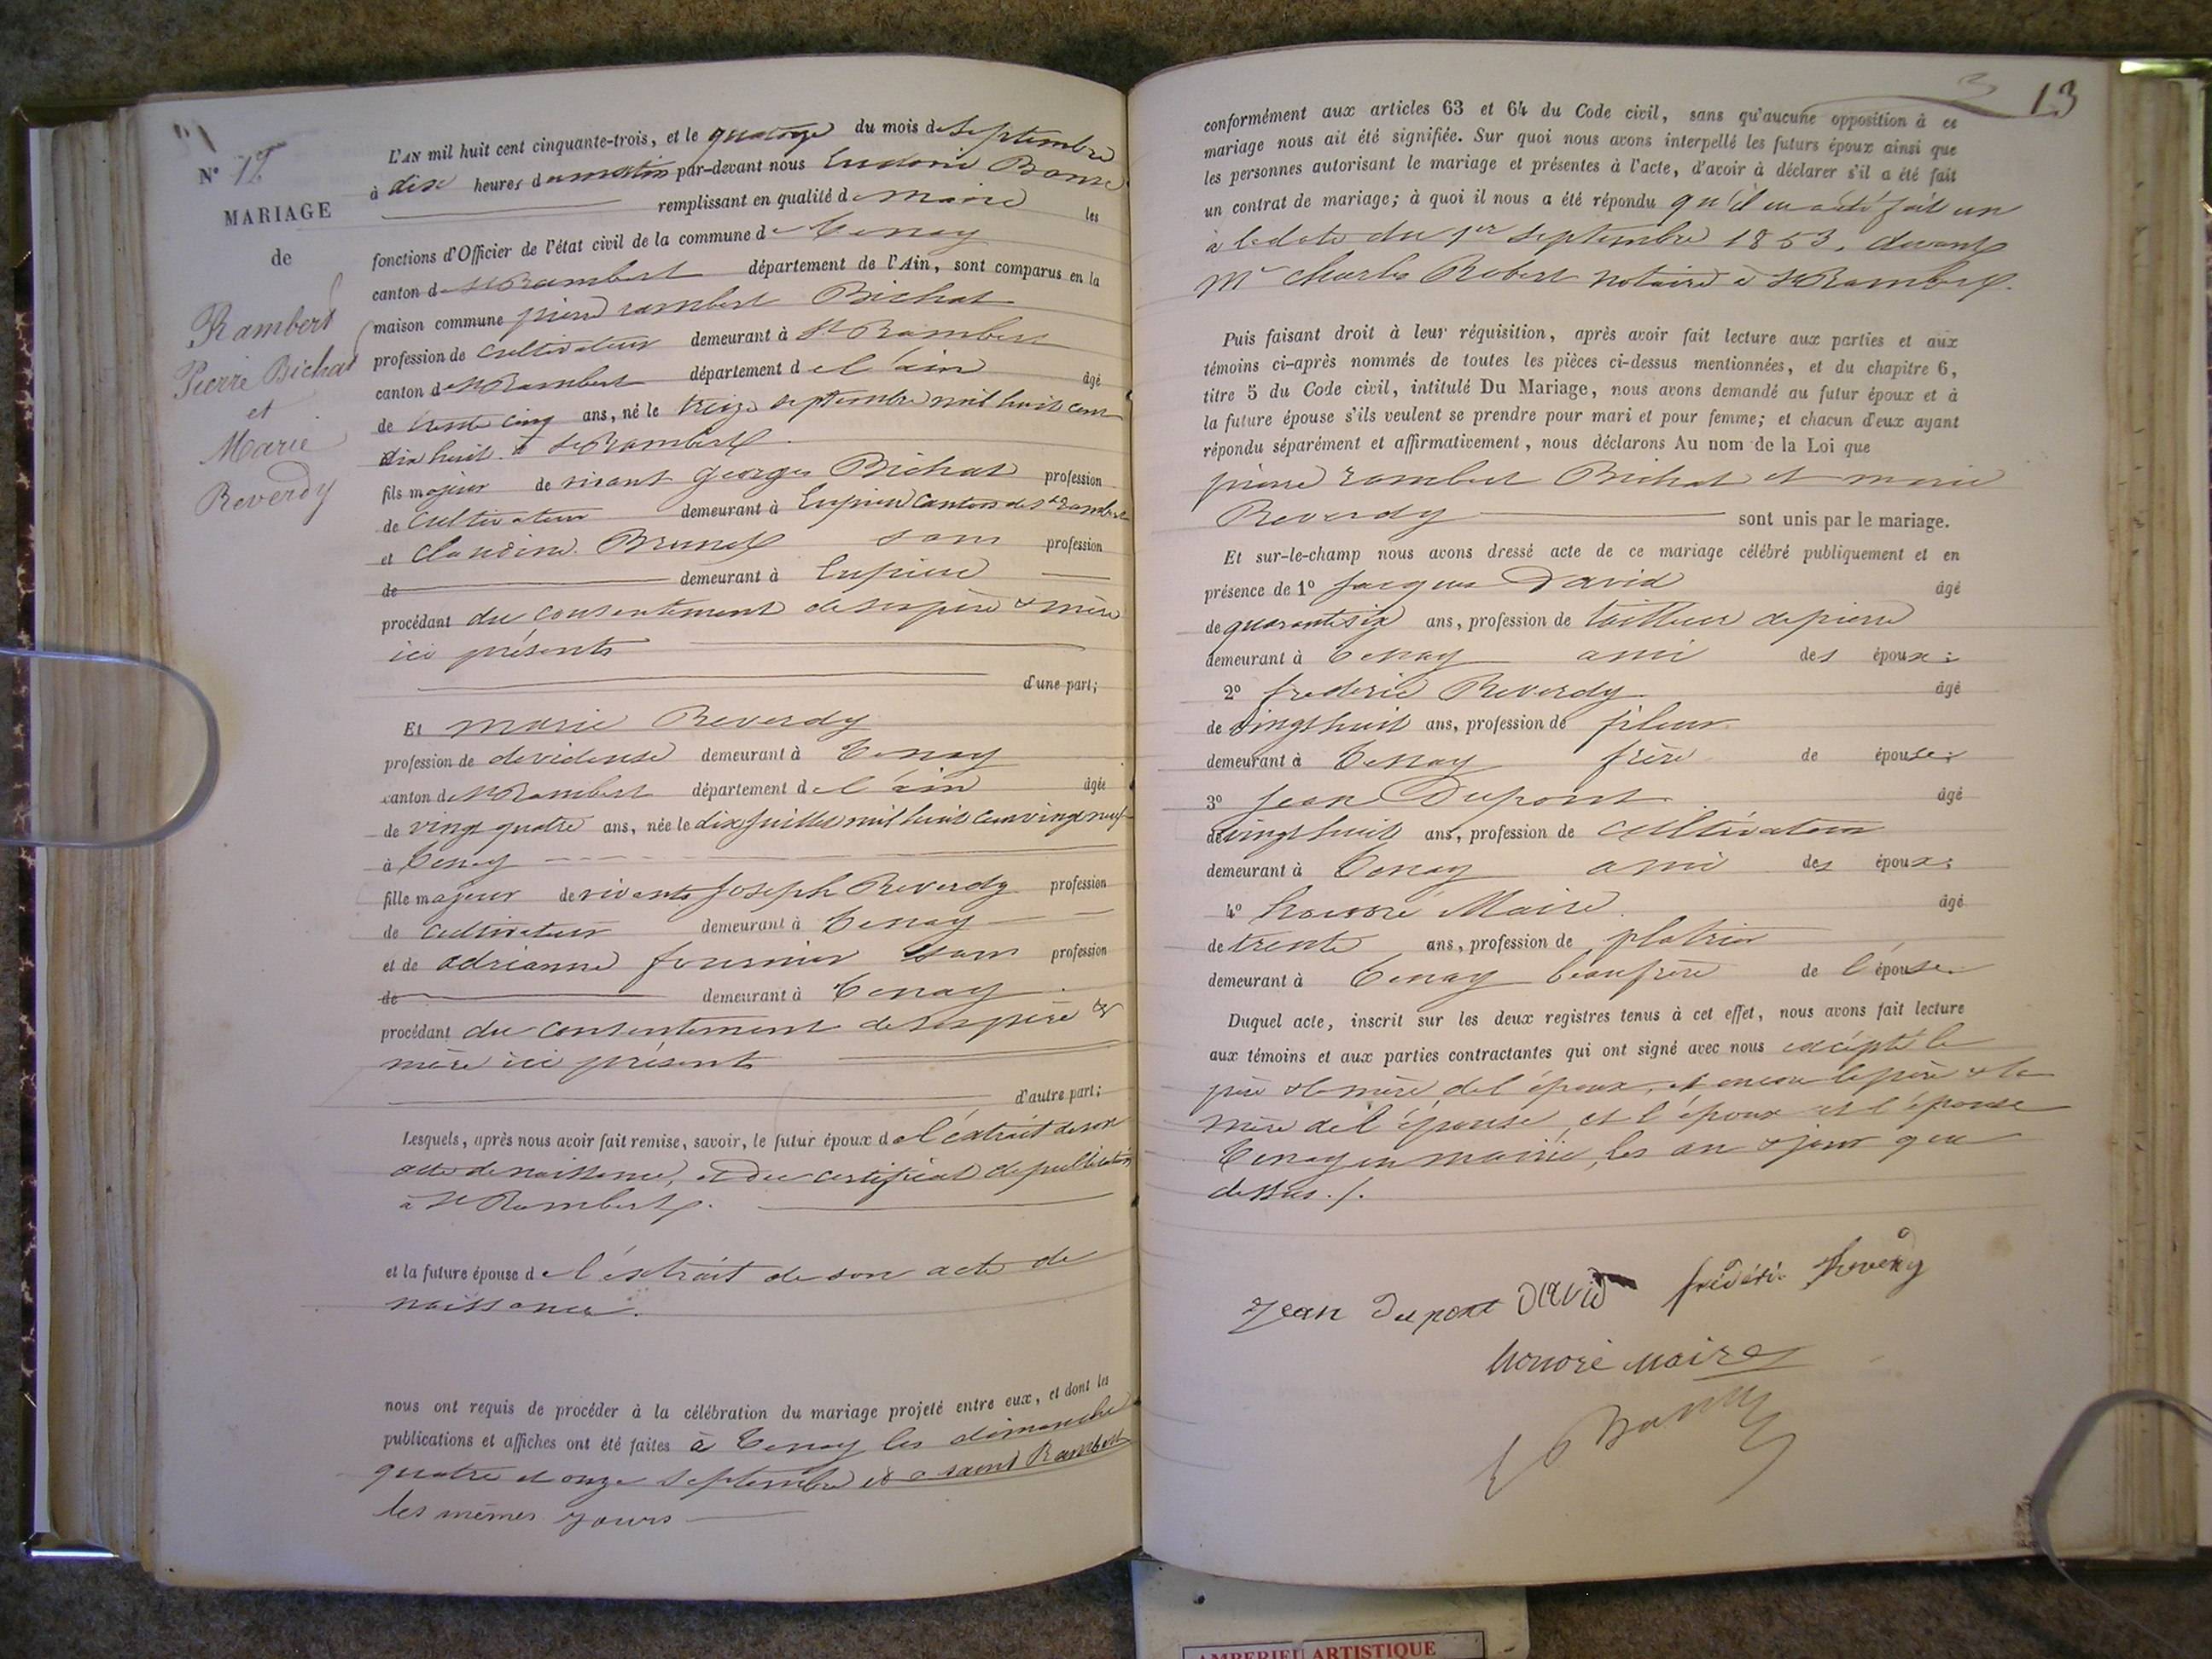 N° 12
MARIAGE
de
Rambert
Pierre Bichat
et
Marie
Reverdy
L'AN mil huit cent cinquante-trois, et le quatorze du mois de Septembre
à dix heures du matin par-devant nous
remplissant en qualité de Maire les
fonctions d'Officier de l'état civil de la commune de Tenay
canton de St Rambert département de l'Ain, sont comparus en la
maison commune pierre rambert Bichat
profession de cultivateur demeurant à St Rambert
canton de St Rambert département de l'ain âgé
de trente cinq ans, né le treize septembre mil huit cent
dix huit à St Rambert
fils majeur de vivant georges Bichat profession
de cultivateur demeurant à canton de St rambert
et claudine Brunet sans profession
de demeurant à
procédant du consentement de ses père & mère
ici présents
d'une part;
Et marie Reverdy
profession de devideuse demeurant à Tenay
canton de St Rambert département de l'ain âgée
de vingt quatre ans, née le dix juillet mil huit cent vingt neuf
à Tenay
fille majeur de vivants Joseph Reverdy profession
de cultivateur demeurant à Tenay
et de adrianne fournier sans profession
de demeurant à Tenay
procédant du consentement de ses père &
mère ici présents
d'autre part;
Lesquels, après nous avoir fait remise, savoir, le futur époux de l'extrait de son
acte de naissance, et du certificat de publication
à St Rambert.
et la future épouse de l'extrait de son acte de
naissance.
nous ont requis de procéder à la célébration du mariage projeté entre eux, et dont les
publications et affiches ont été faites à Tenay les dimanche
quatre et onze septembre et a saint Rambert
les mêmes jours
13
conformément aux articles 63 et 64 du Code civil, sans qu'aucune opposition à ce
mariage nous ait été signifiée. Sur quoi nous avons interpellé les futurs époux ainsi que
les personnes autorisant le mariage et présentes à l'acte, d'avoir à déclarer s'il a été fait
un contrat de mariage; à quoi il nous a été répondu qu'il en a été fait un
à la date du 1er septembre 1853, devant
Me Charles Robert notaire à St Rambert.
Puis faisant droit à leur réquisition, après avoir fait lecture aux parties et aux
témoins ci-après nommés de toutes les pièces ci-dessus mentionnées, et du chapitre 6,
titre 5 du Code civil, intitulé Du Mariage, nous avons demandé au futur époux et à
la future épouse s'ils veulent se prendre pour mari et pour femme; et chacun d'eux ayant
répondu séparément et affirmativement, nous déclarons Au nom de la Loi que
pierre rambert Bichat et marie
Reverdy sont unis par le mariage.
Et sur-le-champ nous avons dressé acte de ce mariage célébré publiquement et en
présence de 1° Jacques David âgé
de quarante six ans, profession de tailleur de pierre
demeurant à Tenay ami des époux;
2° frederic Reverdy âgé
de vingt huit ans, profession de fileur
demeurant à Tenay frère de épouse;
3° Jean Dupont âgé
de vingt huit ans, profession de cultivateur
demeurant à Tenay ami des époux;
4° honoré Maire âgé
de trente ans, profession de platrier
demeurant à Tenay beaufrère de l'épouse
Duquel acte, inscrit sur les deux registres tenus à cet effet, nous avons fait lecture
aux témoins et aux parties contractantes qui ont signé avec nous excépté le
père & la mère de l'époux, et encore le père & la
mère de l'épouse, et l'époux et l'épouse
Tenay en mairie, les an & jour que
dessus ./.
Jean Dupont David frédéric Reverdy
honoré maire
AMBERIEU ARTISTIQUE